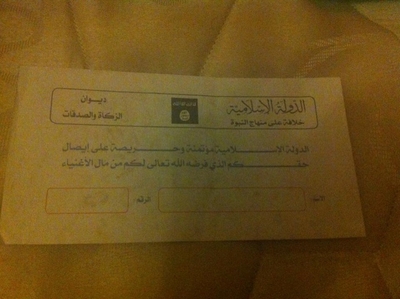 الدولة الإسلامية
خلافة على منهاج النبوة
ديـوان
الزكاة والصدقات
الدولة الإسـلامية مؤتمنة وحـريصة على إيصال
حقـكم الذي فرضه الله تعالى لكم من مال الأغنياء
الاسم:
الرقم: